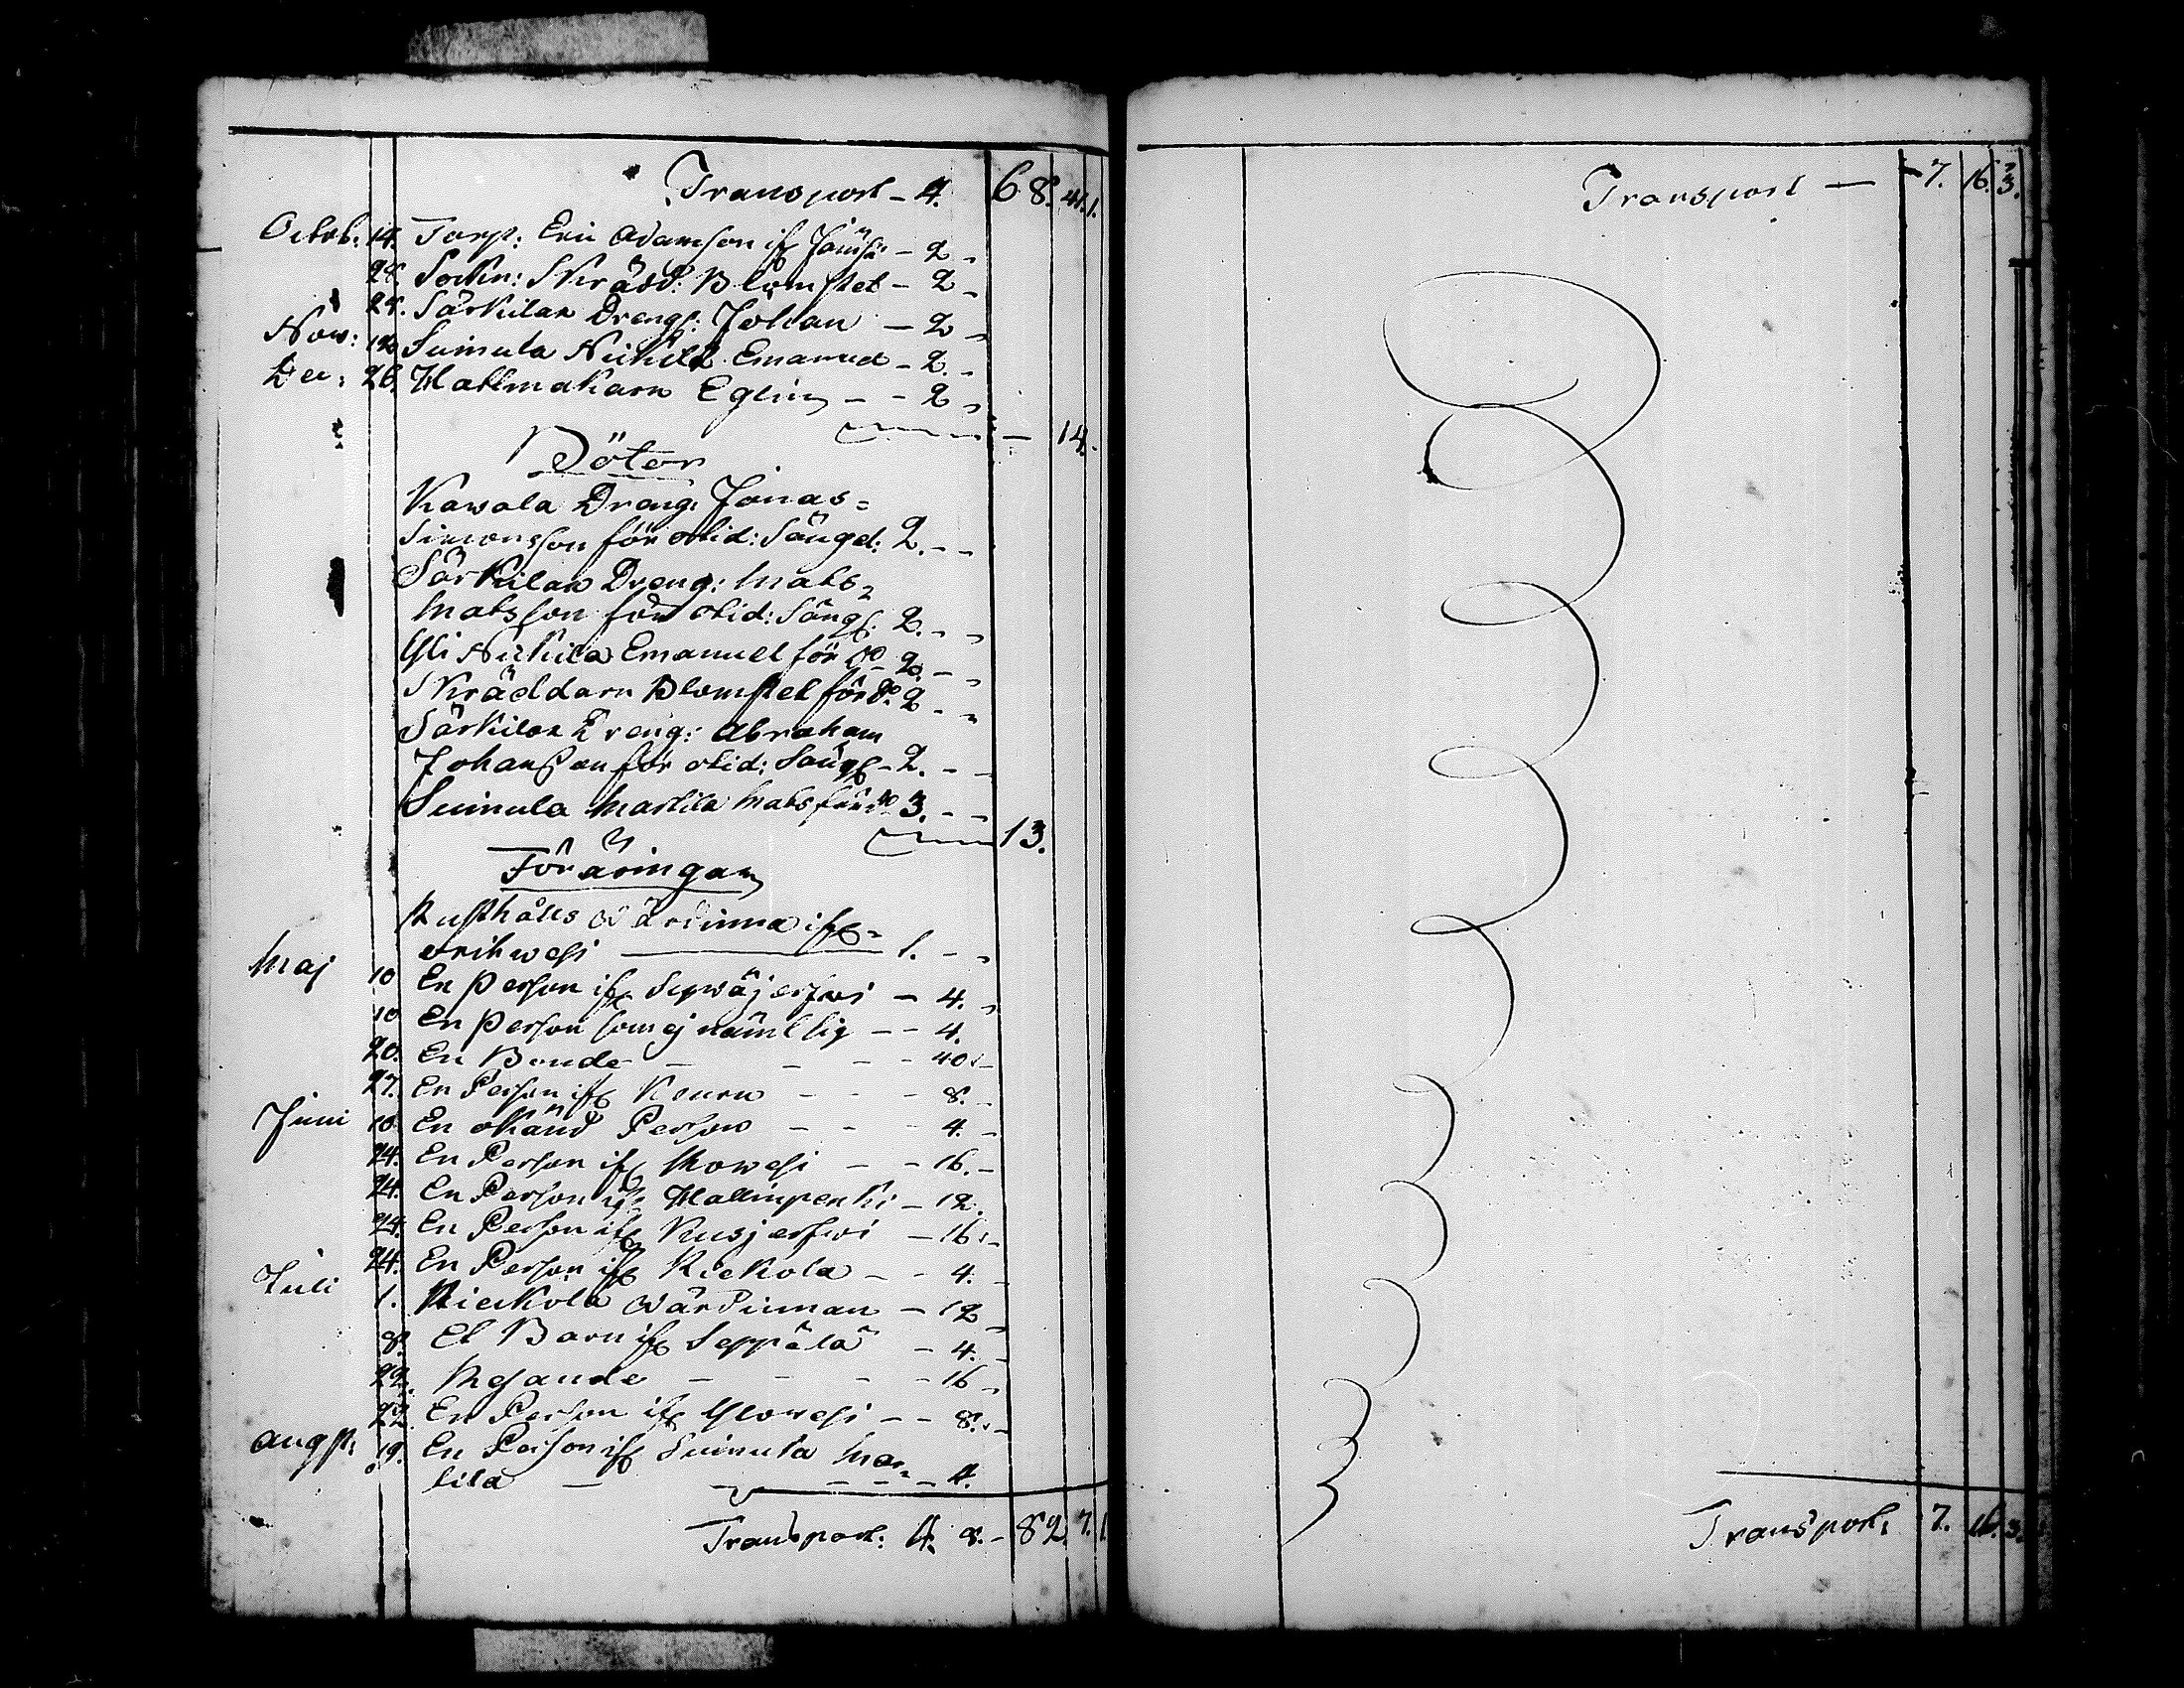 Transport - 4. 68. 41. 1.
Octob: 14. Torp: Eric Adamson if Jämsä - 2 -
28. Sockn: Skrädd: Blomstet - 2 -
28. Särkilax Drengs: Johan - 2 -
Nov: 18 Suinula Nickilä Emanuel - 2. -
Dec: 26. Hattmakarn Eglin - - 2 -
- 14. -
Böter
Kawala Dreng: Jonas =
Simonsson för olid: Sängel: 2. - -
Särkilax Dreng: Mats =
Matsson för olid: Sängl. 2. - -
Yli Nickilä Emanuel för do 2. - -
Skräddarn Blomstet för do 2 - -
Särkilax Dreng: Abraham
Johansson för olid: Sängl - 2. - -
Suinula Martila Mats för do 3. - -
13.
Föräringar
Rusthålls Wärdinna if =
orihwesi 1. - -
Maj 10 En Person if - 4. -
10 En Person som ej nämt sig - - 4.
20. En Bonde - - - - 40. -
27. En Person if Keuru - - - 8. -
Juni 10 En okänd Person - - - 4. -
24. En Person if - - 16. -
24. En Person if Hallinpenki - 12.
24. En Person if Kusjerfwi - 16. -
24. En Person if Kiekola - - 4. -
Juli 1. Kieckola Wärdinnan - 12 -
8. Et Barn if Seppälä - 4. -
22. Resande - - - - 16 -
22. En Person if Ylowesi - - 8. -
Augst: 19. En Person if Suinula Mar=
tila - - - - 4.
Transport: 4. 8. - 82. 7. 1
Transport - 7. 16. 3.
Transport: 7. 16. 3.